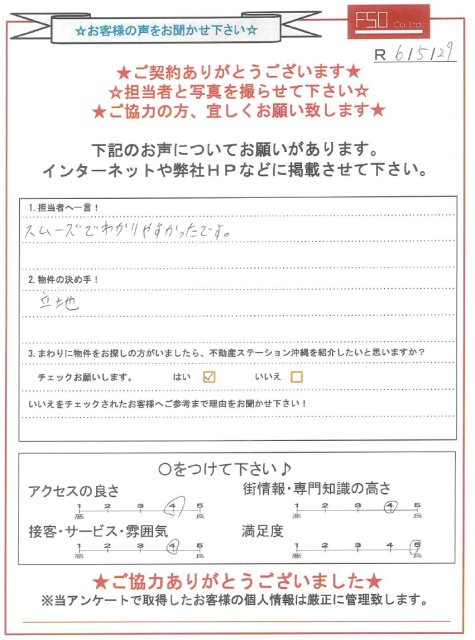 ☆お客様の声をお聞かせ下さい☆
FSO
Co.Ltd.
R 615129
★ご契約ありがとうございます★
☆担当者と写真を撮らせて下さい☆
★ご協力の方、宜しくお願い致します★
下記のお声についてお願いがあります。
インターネットや弊社HPなどに掲載させて下さい。
1.担当者へ一言！
スムーズでわかりやすかったです。
2.物件の決め手！
立地
3.まわりに物件をお探しの方がいましたら、不動産ステーション沖縄を紹介したいと思いますか？
チェックお願いします。 はい ☑ いいえ ☐
いいえをチェックされたお客様へご参考まで理由をお聞かせ下さい！
○をつけて下さい♪
アクセスの良さ 街情報・専門知識の高さ
1 2 3 4 5 1 2 3 4 5
悪 良 悪 良
接客・サービス・雰囲気 満足度
1 2 3 4 5 1 2 3 4 5
悪 良 悪 良
★ご協力ありがとうございました★
※当アンケートで取得したお客様の個人情報は厳正に管理致します。